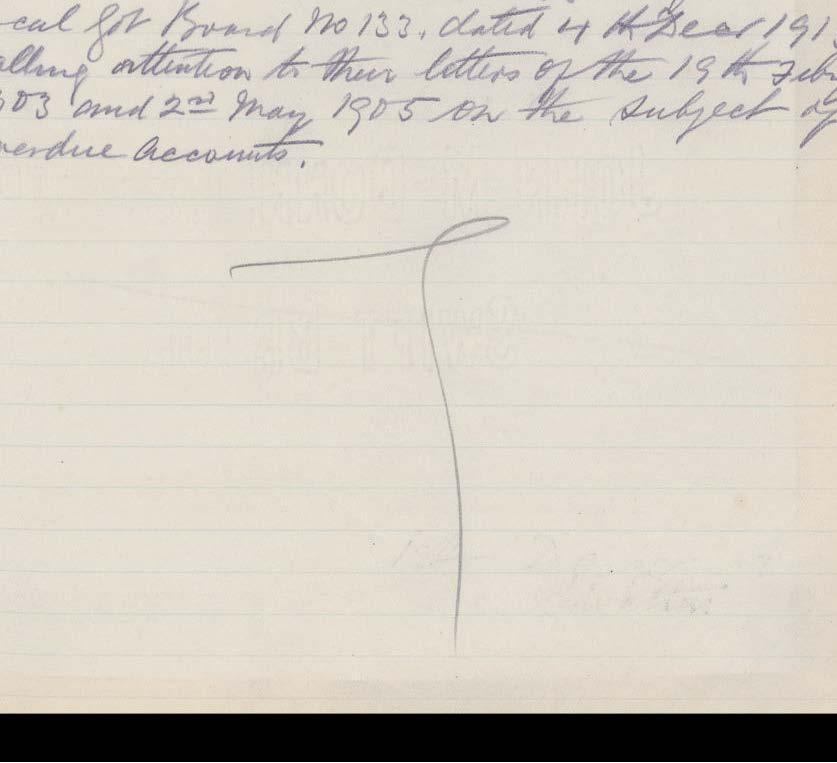 cal Gov Board No 133. dated 4th Decr 191
alling attention to their letters of the 19th Feb
903 and 2nd May 1905 on the subject of
verdue accounts.